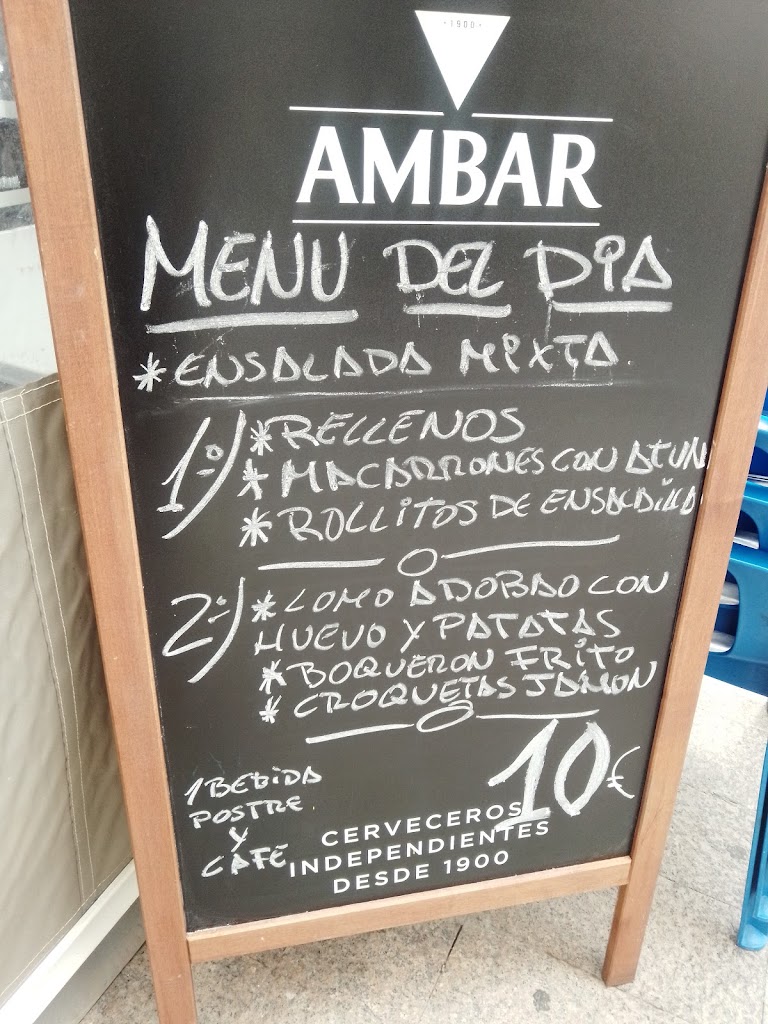 ·1900·
AMBAR
MENU DEL DiA
* ENSALADA MiXTA.
1º) * RELLENOS
* MACARRONES CON ATUN
* ROLLiTOS DE ENSALADiLLA
2º) * LOMO ADOBAO CON
HUEVO Y PATATAS
* BOQUERON FRiTO
* CROQUETAS JAMON
10€
1 BEBiDA
POSTRE.
Y
CAFE
CERVECEROS
INDEPENDIENTES
DESDE 1900